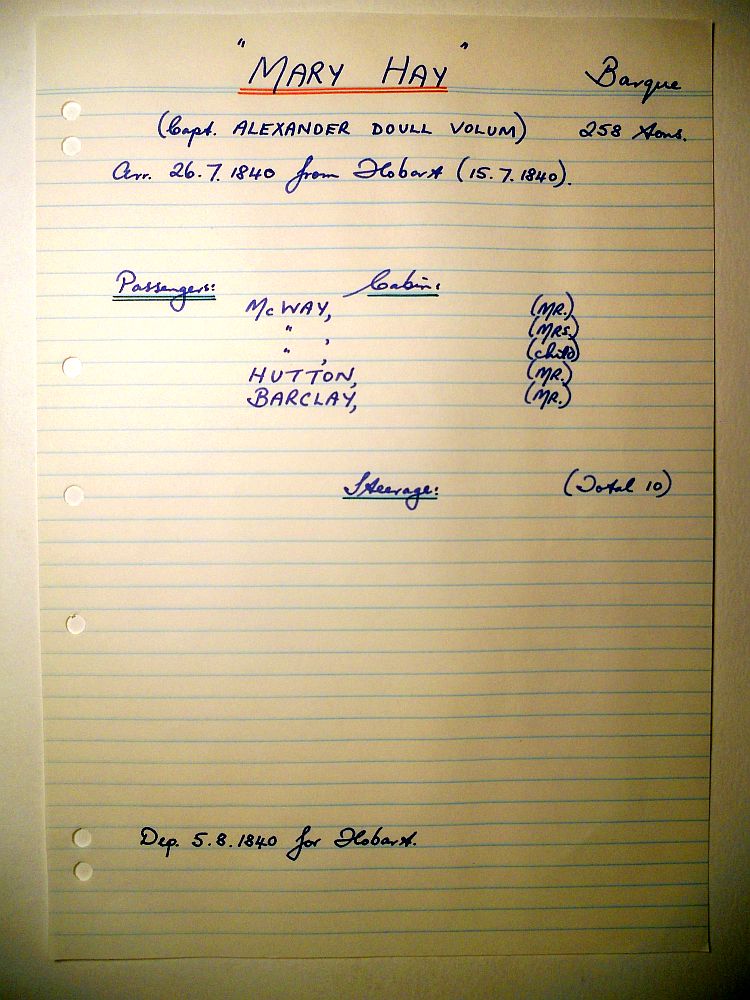 "MARY HAY" Barque
(Capt. ALEXANDER DOULL VOLUM) 258 tons.
Arr. 26.7.1840 from Hobart (15.7.1840).
Passengers: Cabin:
McWAY, (MR.)
" , (MRS.)
" , (child)
HUTTON, (MR.)
BARCLAY, (MR.)
Steerage: (Total 10)
Dep. 5.8.1840 for Hobart.